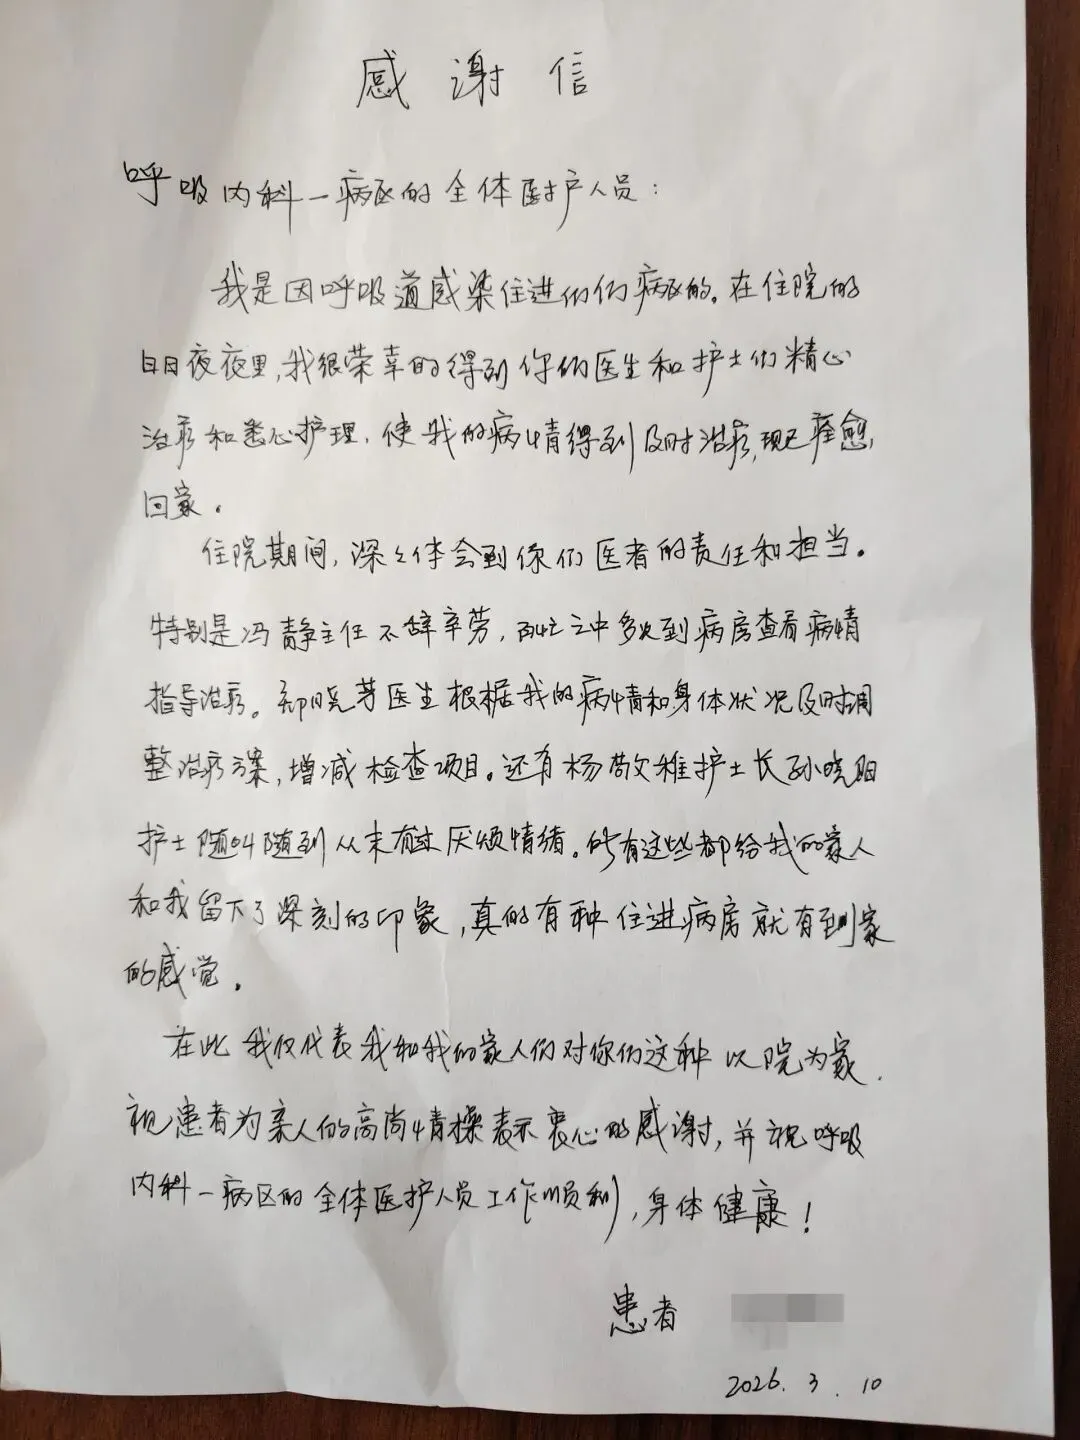 感谢信
呼吸内科一病区的全体医护人员：
我是因呼吸道感染住进们们病区的。在住院的
日日夜夜里，我很荣幸的得到你们医生和护士们精心
治疗和悉心护理，使我的病情得到及时治疗，现已痊愈，
回家。
住院期间，深々体会到你们医者的责任和担当。
特别是冯静主任不辞辛劳，百忙之中多次到病房查看病情
指导治疗。郑晓芽医生根据我的病情和身体状况及时调
整治疗方案，增减检查项目。还有杨敬雅护士长孙晓阳
护士随叫随到从未有过厌烦情绪。所有这些都给我的家人
和我留下了深刻的印象，真的有种住进病房就有到家
的感觉。
在此我仅代表我和我的家人们对你们这种以院为家，
视患者为亲人的高尚情操表示衷心的感谢，并祝呼吸
内科一病区的全体医护人员工作顺利，身体健康！
患者
2026.3.10